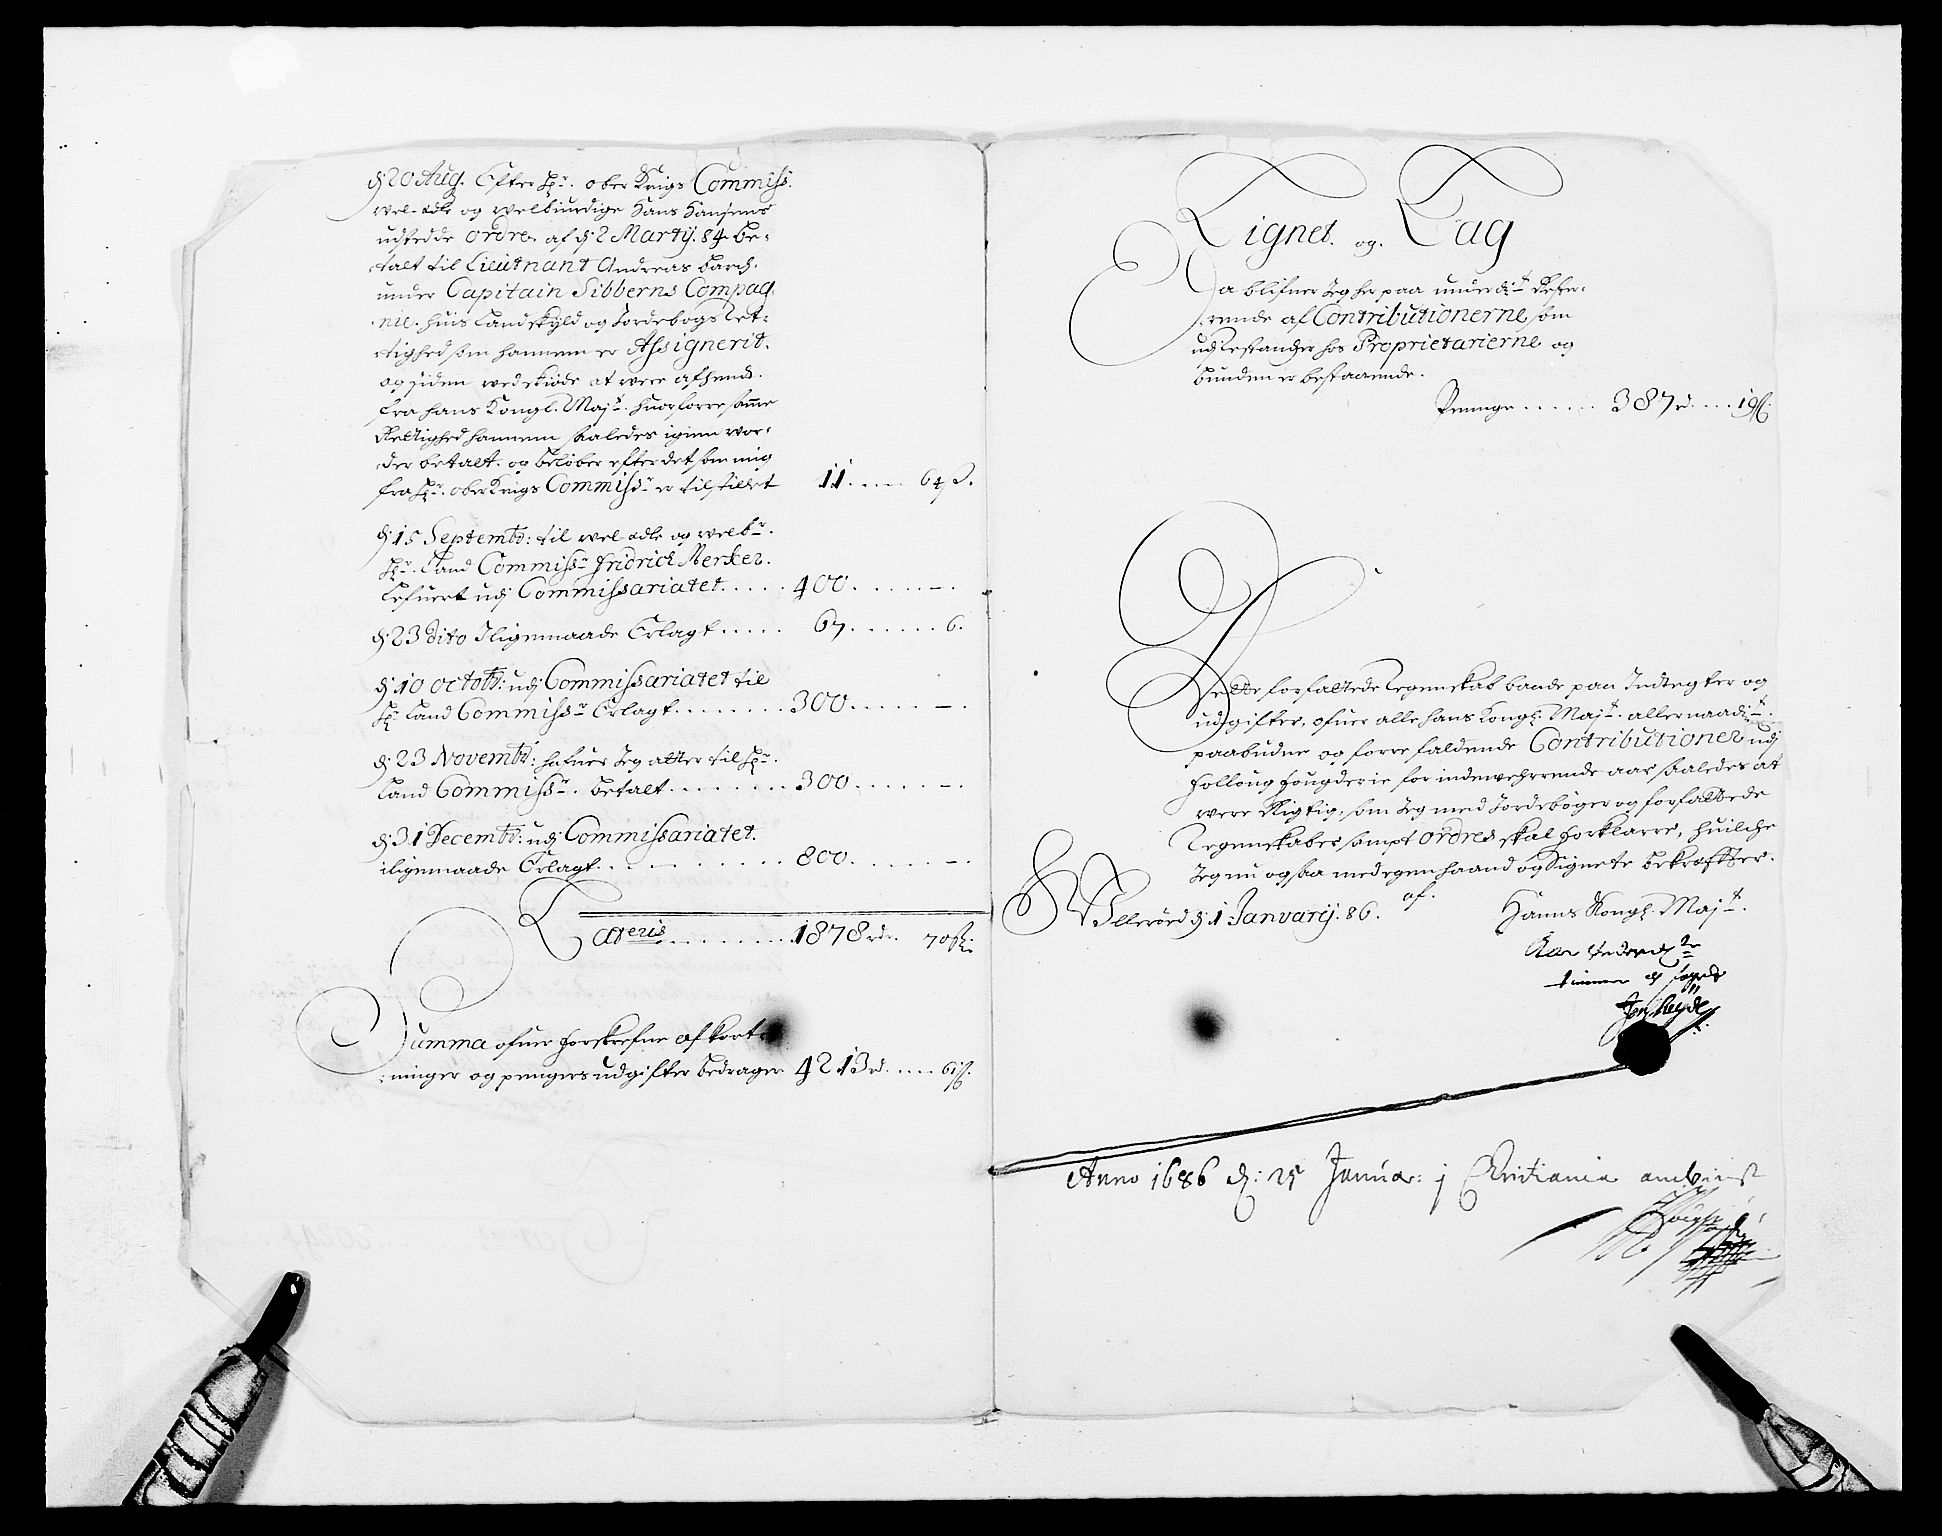 d: 20 Aug. Efter Hr. ober Krigs Commiss.
wel-ædle og welbiurdige Hans Hansens
udstedde Ordre af d: 2 Martij. 84 be-
talt til Lieutnant Andreas Barch.
under Capitain Sibberns Compag-
nie. huis Landskyld og Jordebogs Ret-
tighed som hannem er Assignerit.
og siden wed skiøde at were afhendt.
fra hans Kongl. Majt. huorforre samme
Rettighed hannem saaledes igien wor-
der betalt. og beløber efter det som mig
fra Hr. ober Krigs Commissr er tilstillet 11 .... 64 s.
d: 15 Septembr: til wel ædle og welbr.
Hr. Land Commissr Fridrich Merker.
Lefuert udj Commissariatet ..... 400 ..... —.
d: 23 Dito Iligemaade Erlagt ..... 67 ...... 6.
d: 10 Octobr: udj Commissariatet til
Hr Land Commissr Erlagt ....... 300 ..... —.
d: 23 Novembr: hafuer Jeg atter til Hr.
Land Commissr. betalt ........ 300 ..... —.
d: 31 Decembr: udj Commissariatet.
iligemaade Erlagt ......... 800 ..... —.
Lateris ........ 1878 rdr. 70 s:
Summa ofuer forskrefne afkort-
ninger og pengers udgifter bedrager 4213 rd. .... 61 s.
Lignet. og. Lag
Da blifuer Jeg her paa underdt Reste-
rende af Contributionerne som
udj Restantzer hos Proprietarierne og
bunden er bestaaende.
Penninge ...... 387 rd. .... 19 s.
Dette forfattede Regenskab baade paa Indtegter og
udgifter, ofuer alle hans Kongl. Majt. allernaadit.
paabudne og forrefaldende Contributioner udj
Folloug Fougderie for indewehrrende aar saaledes at
were Rigtig, som Jeg med Jordebøger og forfattede
Regenskaber sampt Ordres skal forklarre, huilche
Jeg nu ogsaa med egen haand og Signete bekreffter.
af.
Wllerørd d: 1 Januarij. 86. Hanns Kongl. Majt.
Anno 1686 d: 25 Januar: j Christiania anviist